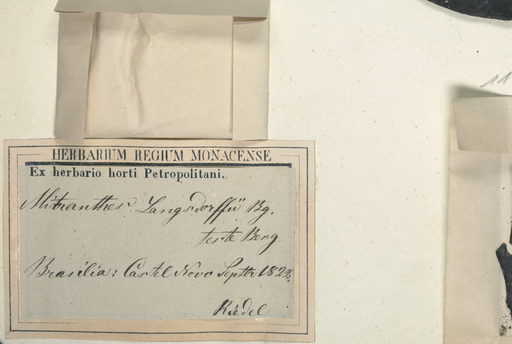 HERBARIUM REGIUM MONACENSE
Ex herbario horti Petropolitani.
Mitranthes Langsdorffii Bg.
teste Berg
Brasilia: Castel Novo Septbr 1822
Riedel